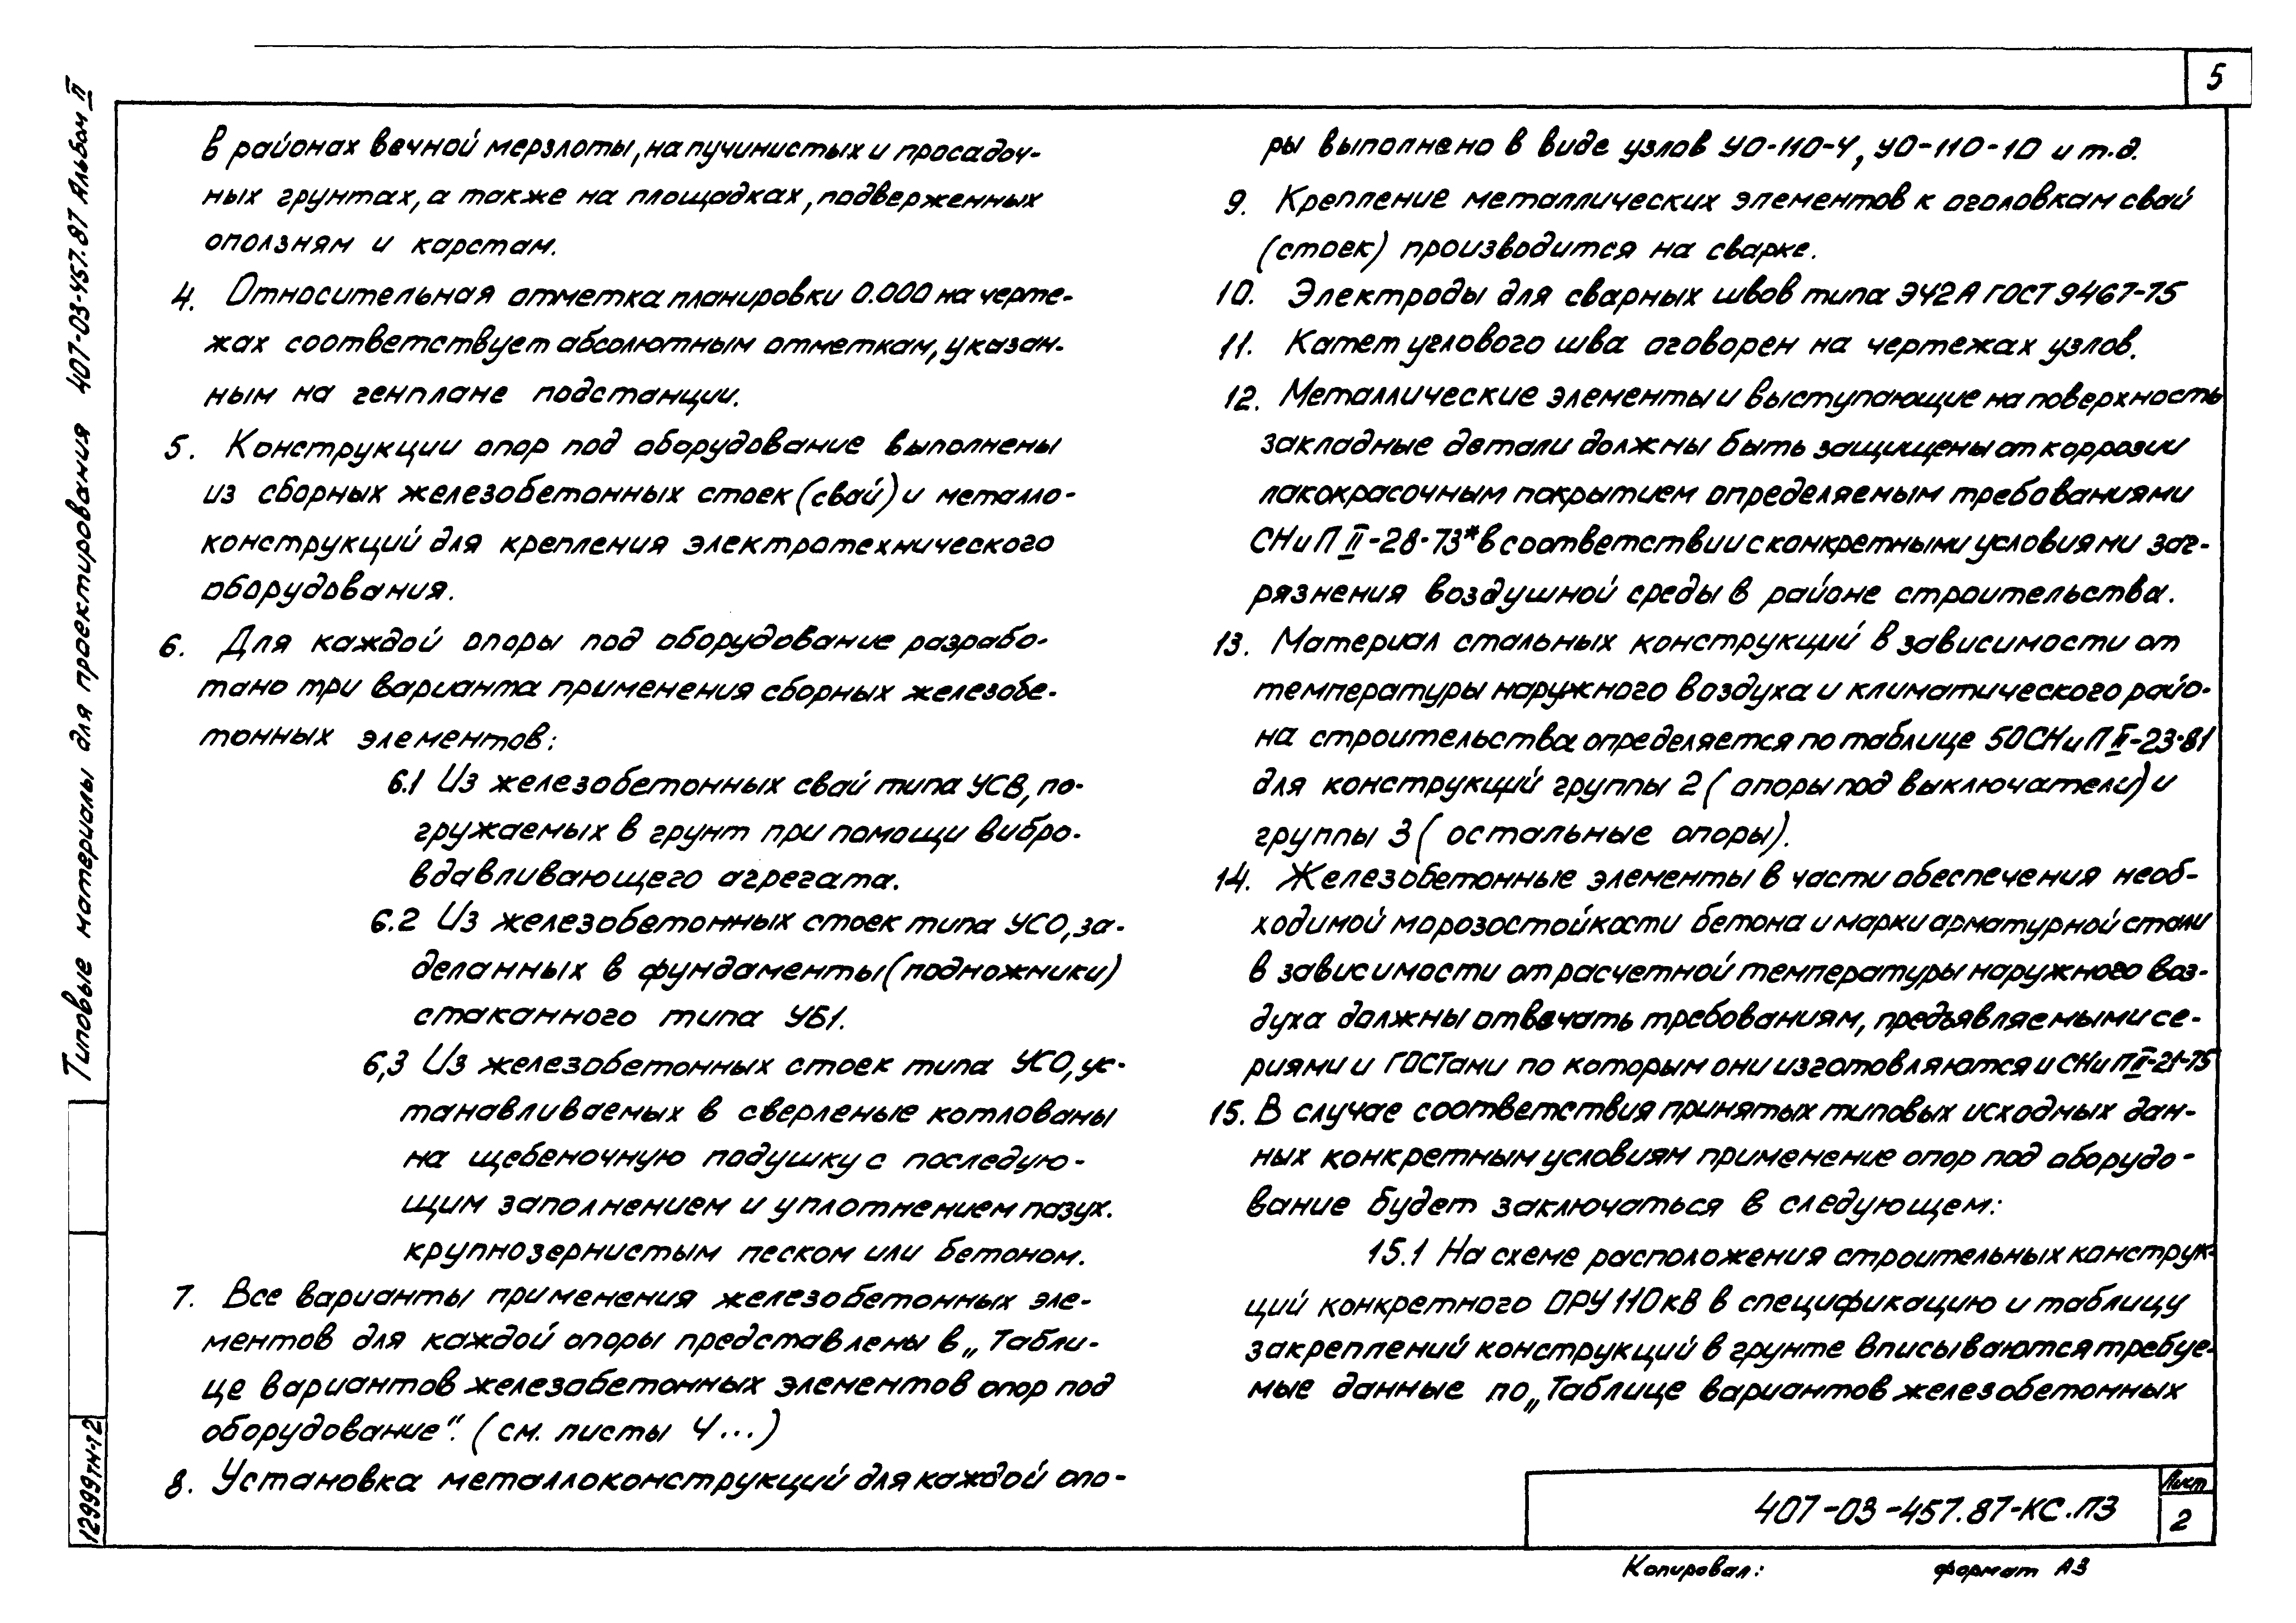 5
Типовые материалы для проектирования 407-03-457.87 Альбом II
12999тм-т2
в районах вечной мерзлоты, на пучинистых и просадоч-
ных грунтах, а также на площадках, подверженных
оползням и карстам.
4. Относительная отметка планировки 0.000 на черте-
жах соответствует абсолютным отметкам, указан-
ным на генплане подстанции.
5. Конструкции опор под оборудование выполнены
из сборных железобетонных стоек (свай) и металло-
конструкций для крепления электротехнического
оборудования.
6. Для каждой опоры под оборудование разрабо-
тано три варианта применения сборных железобе-
тонных элементов:
6.1 Из железобетонных свай типа УСВ, по-
гружаемых в грунт при помощи вибро-
вдавливающего агрегата.
6.2 Из железобетонных стоек типа УСО, за-
деланных в фундаменты (подножники)
стаканного типа УБ1.
6,3 Из железобетонных стоек типа УСО, ус-
танавливаемых в сверленые котлованы
на щебеночную подушку с последую-
щим заполнением и уплотнением пазух.
крупнозернистым песком или бетоном.
7. Все варианты применения железобетонных эле-
ментов для каждой опоры представлены в „Табли-
це вариантов железобетонных элементов опор под
оборудование". (см. листы 4...)
8. Установка металлоконструкций для каждой опо-
ры выполнено в виде узлов УО-110-4, УО-110-10 и т.д.
9. Крепление металлических элементов к оголовкам свай
(стоек) производится на сварке.
10. Электроды для сварных швов типа Э42А ГОСТ 9467-75
11. Катет углового шва оговорен на чертежах узлов.
12. Металлические элементы и выступающие на поверхность
закладные детали должны быть защищены от коррозии
лакокрасочным покрытием определяемым требованиями
СНиП II-28-73* в соответствии с конкретными условиями заг-
рязнения воздушной среды в районе строительства.
13. Материал стальных конструкций в зависимости от
температуры наружного воздуха и климатического райо-
на строительства определяется по таблице 50 СНиП II-23-81
для конструкций группы 2 (опоры под выключатели) и
группы 3 (остальные опоры).
14. Железобетонные элементы в части обеспечения необ-
ходимой морозостойкости бетона и марки арматурной стали
в зависимости от расчетной температуры наружного воз-
духа должны отвечать требованиям, предъявляемыми се-
риями и ГОСТами по которым они изготовляются и СНиП II-21-75
15. В случае соответствия принятых типовых исходных дан-
ных конкретным условиям применение опор под оборудо-
вание будет заключаться в следующем:
15.1 На схеме расположения строительных конструк-
ций конкретного ОРУ 110 кВ в спецификацию и таблицу
закреплений конструкций в грунте вписываются требуе-
мые данные по „Таблице вариантов железобетонных
407-03-457.87-КС.ПЗ
Лист
2
Копировал: формат А3